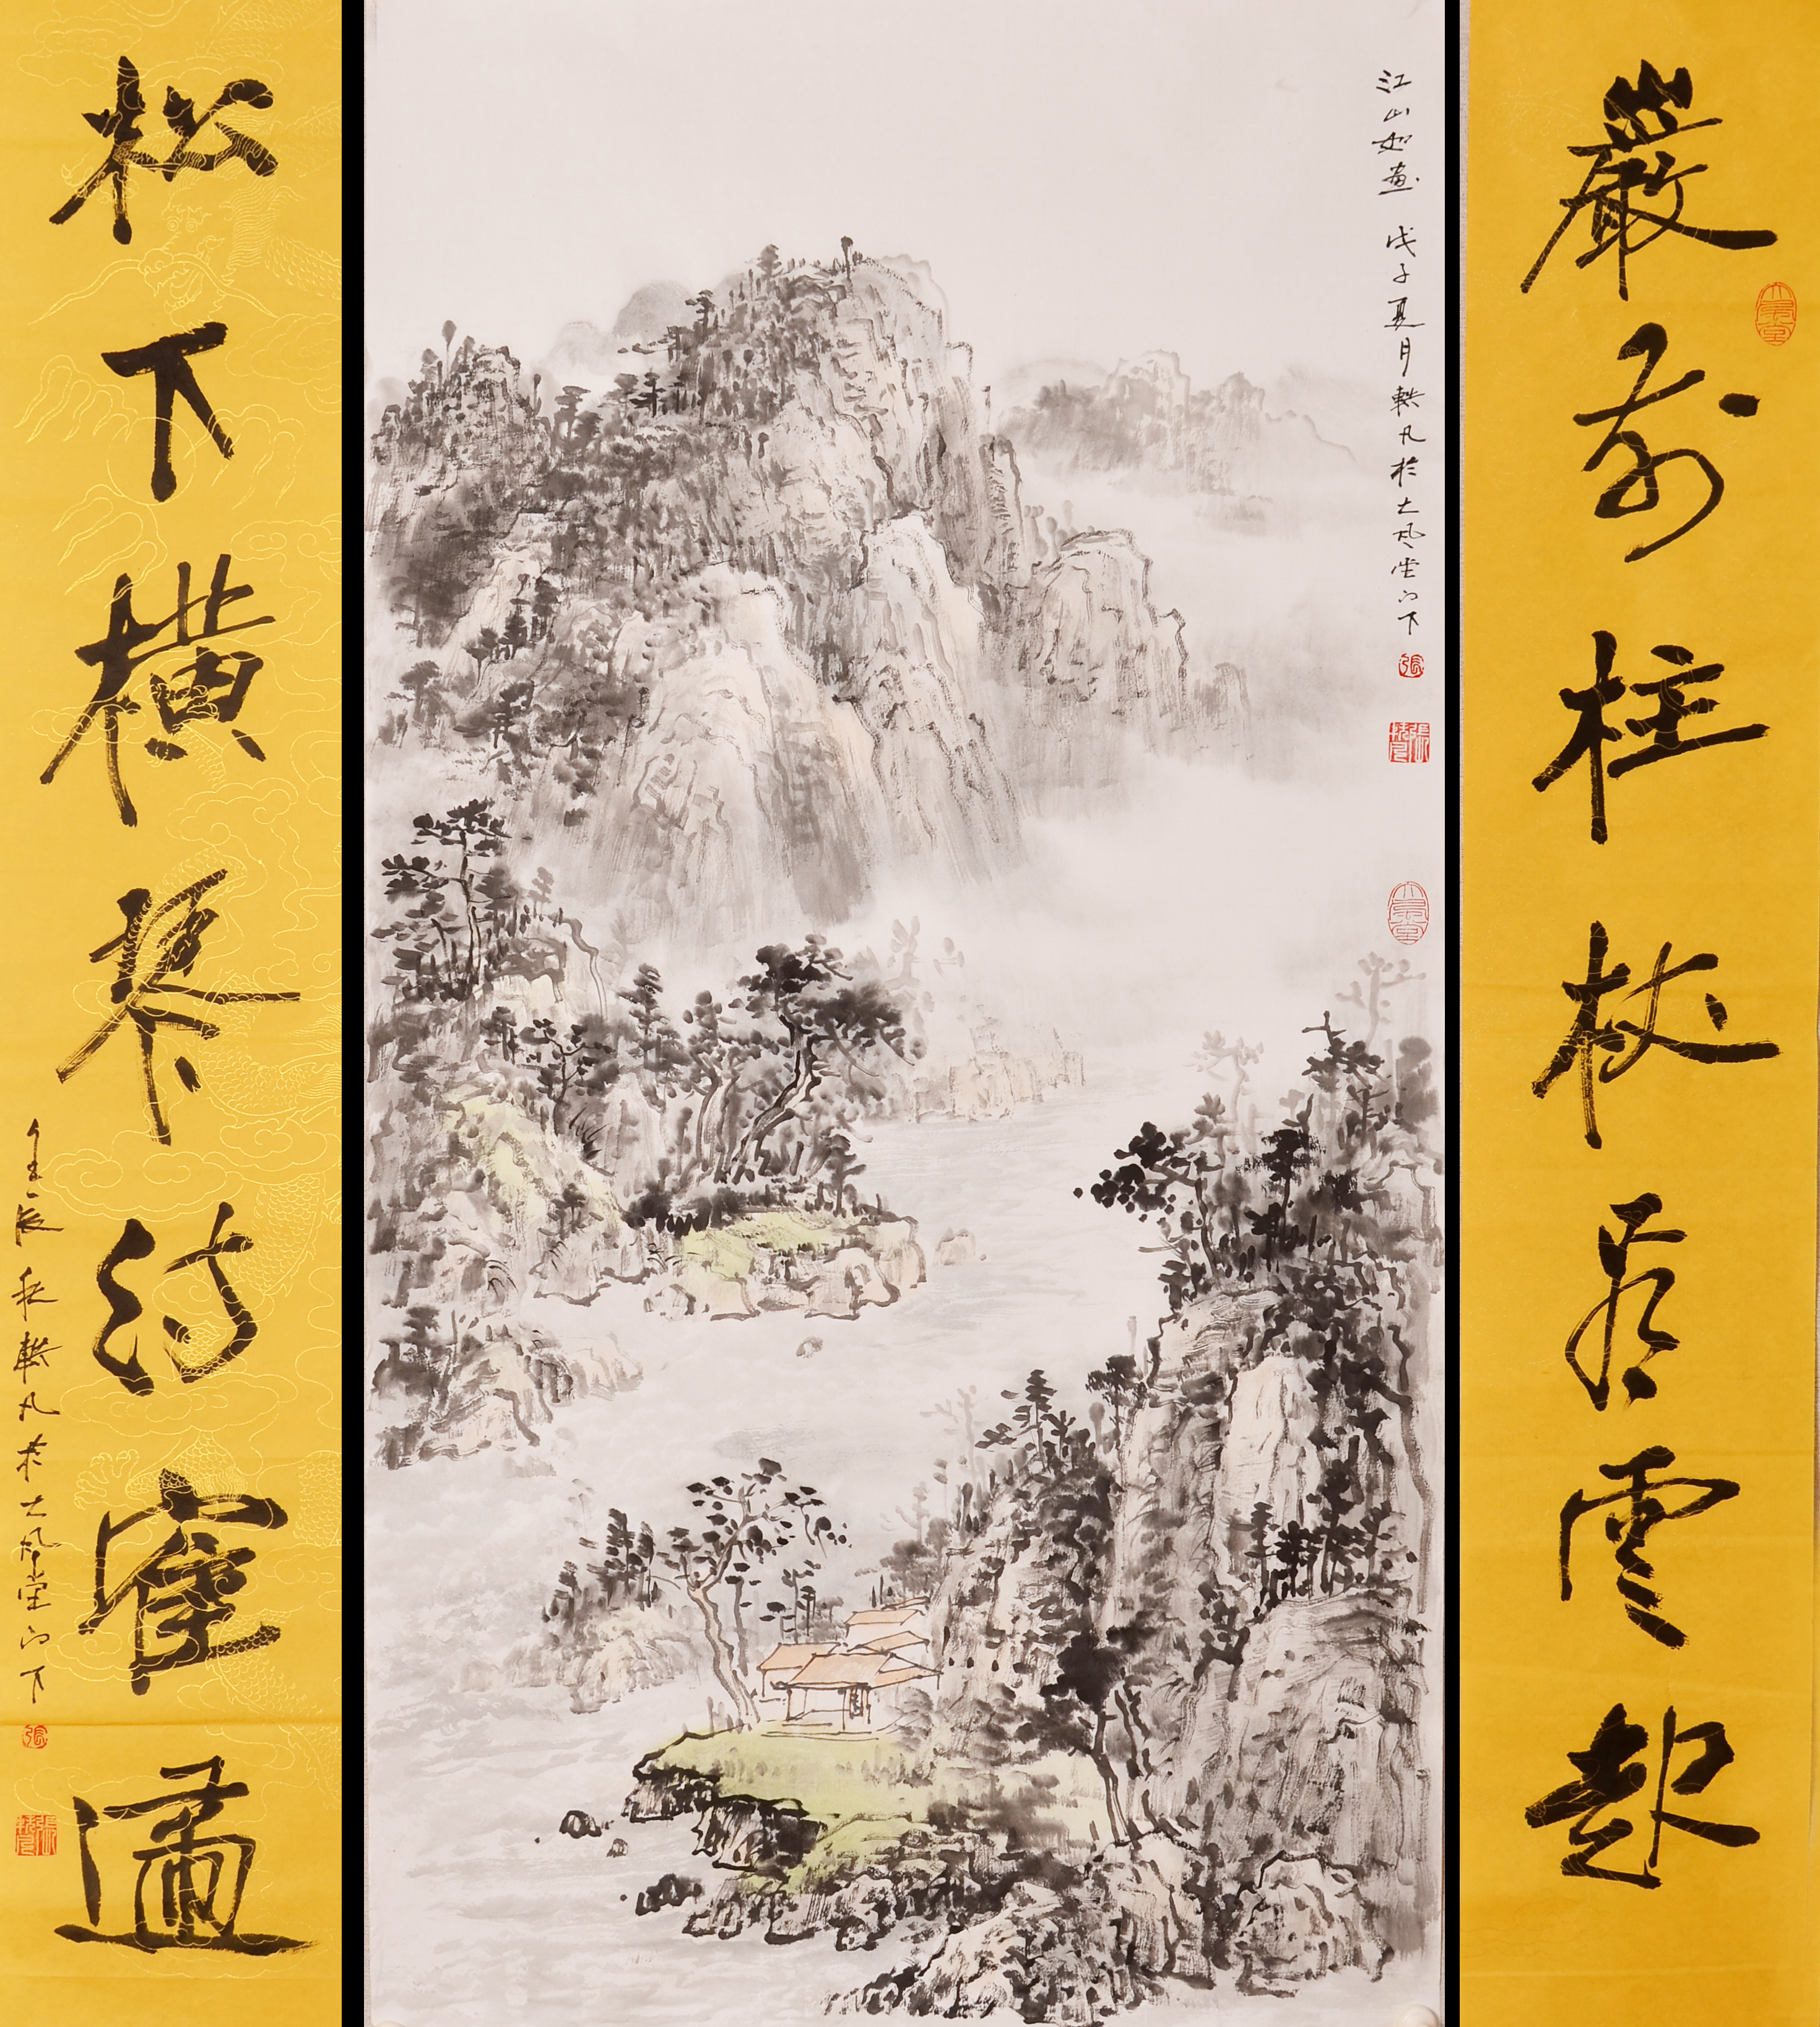 嚴前柱杖看雲起
松下橫琴待鶴還
壬辰秋轶凡於大风堂门下
江山如畫 戊子夏月轶凡於大风堂门下